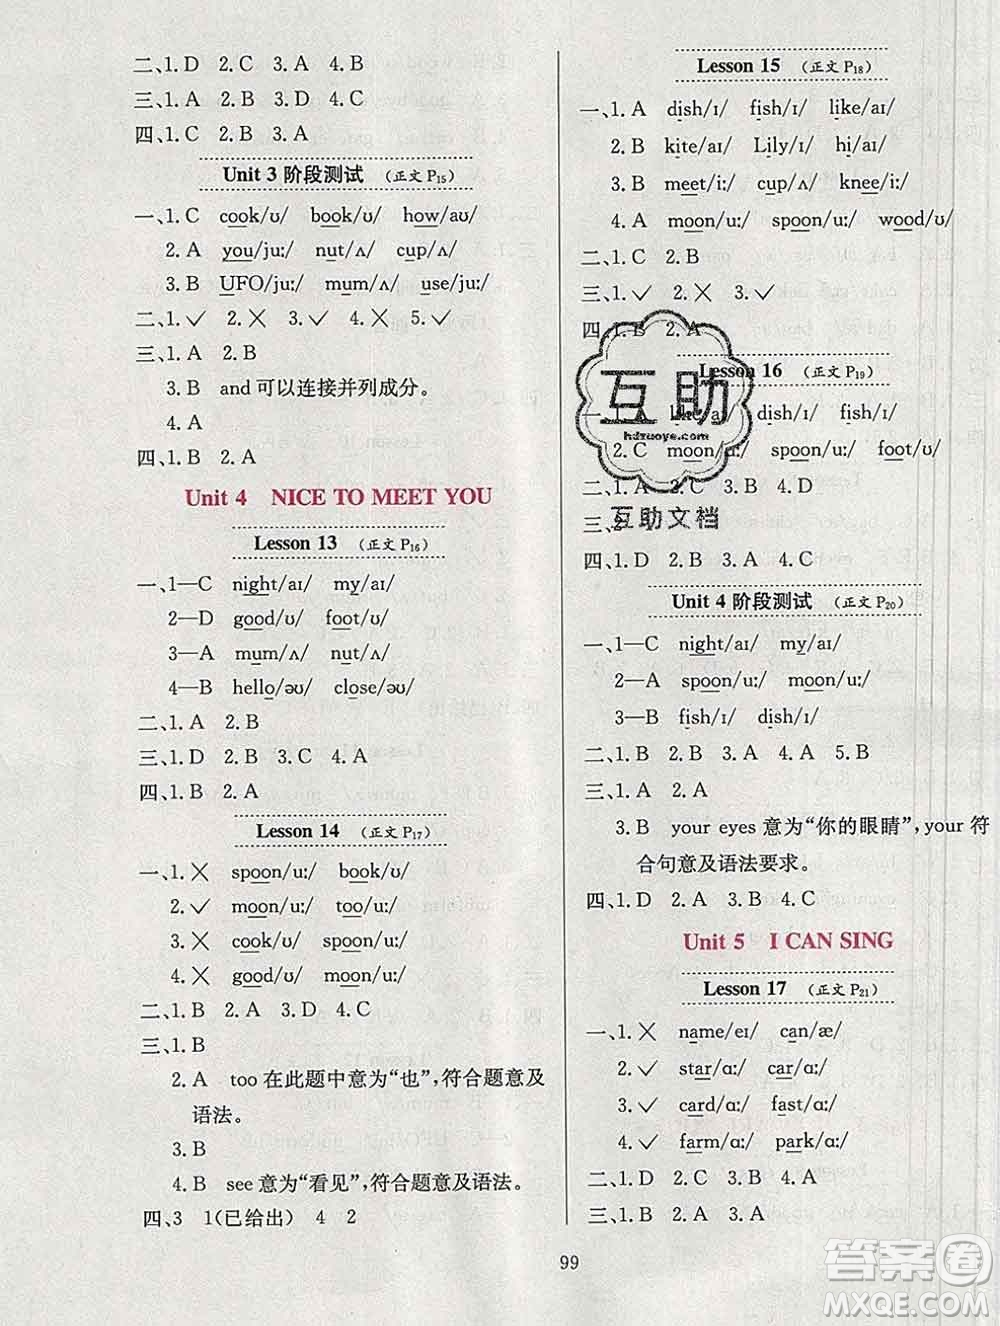 二、1. D  2. C  3. A  4. B
三、1. A  2. B  3. D  4. C
四、1. C  2. B  3. A
Unit 3 阶段测试 (正文 P15)
一、1. C  cook/ʊ/  book/ʊ/  how/aʊ/
2. A  you/juː/  nut/ʌ/  cup/ʌ/
3. B  UFO/juː/  mum/ʌ/  use/juː/
二、1. ✓  2. ✗  3. ✓  4. ✗  5. ✓
三、1. A  2. B
3. B  and可以连接并列成分。
4. A
四、1. B  2. A
Unit 4  NICE TO MEET YOU
Lesson 13 (正文 P16)
一、1—C  night/aɪ/  my/aɪ/
2—D  good/ʊ/  foot/ʊ/
3—A  mum/ʌ/  nut/ʌ/
4—B  hello/əʊ/  close/əʊ/
二、1. A  2. B
三、1. D  2. B  3. C  4. A
四、1. B  2. A
Lesson 14 (正文 P17)
一、1. ✗  spoon/uː/  book/ʊ/
2. ✓  moon/uː/  too/uː/
3. ✗  cook/ʊ/  spoon/uː/
4. ✗  good/ʊ/  moon/uː/
二、1. B  2. A  3. D  4. C
三、1. B
2. A  too 在此题中意为“也”,符合题意及
语法。
3. B
4. B  see意为“看见”,符合题意及语法。
四、3  1(已给出)  4  2
Lesson 15 (正文 P18)
一、1. A  dish/ɪ/  fish/ɪ/  like/aɪ/
2. B  kite/aɪ/  Lily/ɪ/  hi/aɪ/
3. B  meet/iː/  cup/ʌ/  knee/iː/
4. A  moon/uː/  spoon/uː/  wood/ʊ/
二、1. C  2. B
三、1. ✓  2. ✗  3. ✓
四、1. B  2. A
Lesson 16 (正文 P19)
一、1. A  like/aɪ/  dish/ɪ/  fish/ɪ/
2. C  moon/uː/  spoon/uː/  foot/ʊ/
二、1. A  2. C  3. B  4. D
三、2
四、1. D  2. B  3. A  4. C
Unit 4 阶段测试 (正文 P20)
一、1—C  night/aɪ/  my/aɪ/
2—A  spoon/uː/  moon/uː/
3—B  fish/ɪ/  dish/ɪ/
二、1. B  2. B  3. A  4. A  5. B
三、1. A  2. A
3. B  your eyes 意为“你的眼睛”,your 符
合句意及语法要求。
四、1. D  2. A  3. B  4. C
Unit 5  I CAN SING
Lesson 17 (正文 P21)
一、1. ✗  name/eɪ/  can/æ/
2. ✓  star/ɑː/  car/ɑː/
3. ✓  card/ɑː/  fast/ɑː/
4. ✓  farm/ɑː/  park/ɑː/
二、1. D  2. C  3. B  4. A
三、1. B  2. A  3. A
99
互助
hdzuoye.com
互助文档
答案圈
MXQE.COM